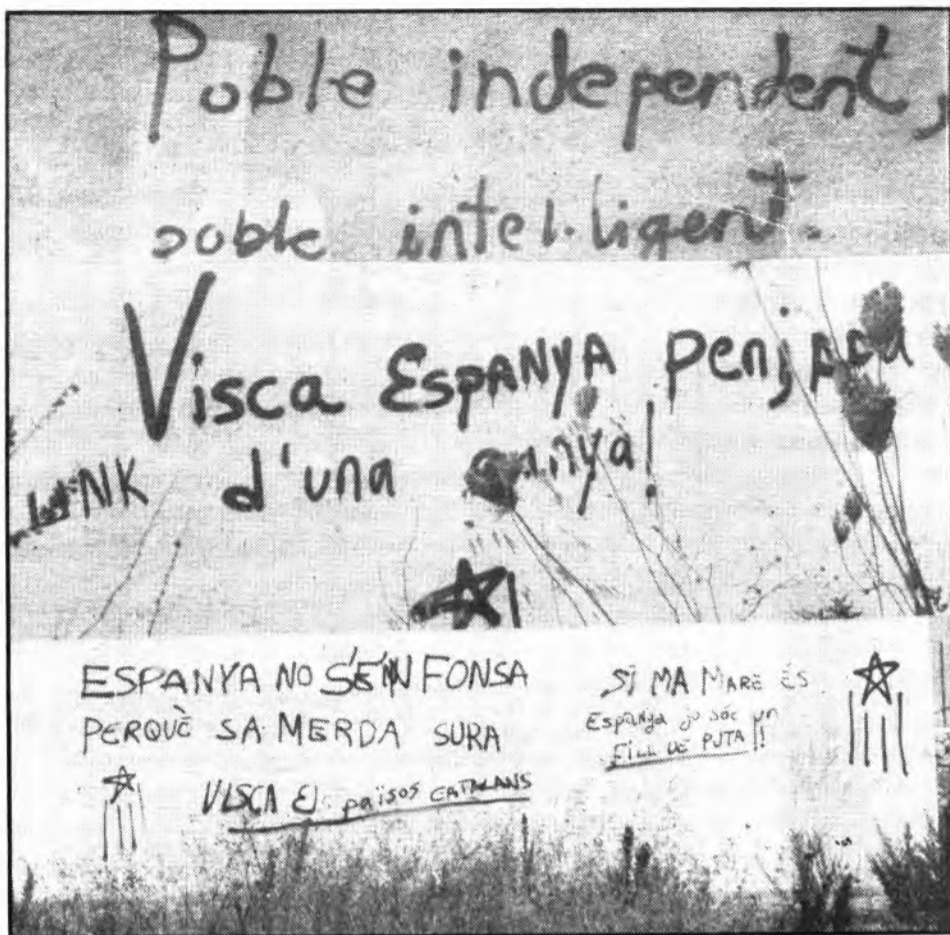 Poble independent,
poble intel·ligent.
Visca ESPANYA penjada
d'una canya!
ESPANYA NO S'ENFONSA
PERQUÈ SA MERDA SURA
VISCA Els països CATALANS
SI MA MARE ÉS
Espanya jo sóc un
FILL DE PUTA!!